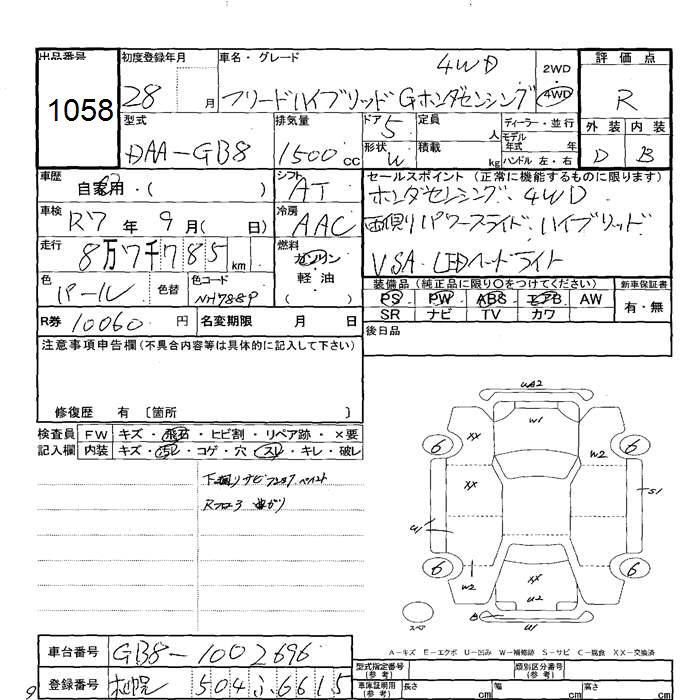 出品番号
1058
初度登録年月
28 月
車名・グレード
4WD
フリードハイブリッドGホンダセンシング
2WD
4WD
評価点
R
外装 内装
D B
型式
DAA-GB8
排気量
1500cc
ドア 5
形状 W
定員 人
積載 kg
ディーラー・並行
モデル年式 年
ハンドル 左・右
車歴
自家用・( )
シフト
AT
セールスポイント (正常に機能するものに限ります)
ホンダセンシング 4WD
両側リパワースライド ハイブリッド
VSA LEDヘッドライト
車検
R7年9月( 日)
冷房
AAC
走行
8万7千785km
燃料
ガソリン
軽・油
( )
色
パール
色替
色コード
NH788P
装備品 (純正品に限り○をつけてください)
新車保証書
PS PW ABS エアB AW
SR ナビ TV カワ
有・無
R券 10060円
名変期限 月 日
後日品
注意事項申告欄(不具合内容等は具体的に記入して下さい)
修復歴 有 〔箇所 〕
検査員記入欄
FW キズ・飛石・ヒビ割・リペア跡・×要
内装 キズ・汚レ・コゲ・穴・スレ・キレ・破レ
下廻りサビ ペイント
Rフロア 曲がり
UA2
W1
XX
6
6
W2
XX
S1
6
6
W2
XX
U2
スペア
A-キズ E-エクボ U-凹み W-補修跡 S-サビ C-腐食 XX-交換済
車台番号 GB8-1002696
登録番号 札幌 504 ふ 6615
型式指定番号(参考)
類別区分番号(参考)
車庫証明用(参考) 長さ cm 幅 cm 高さ cm